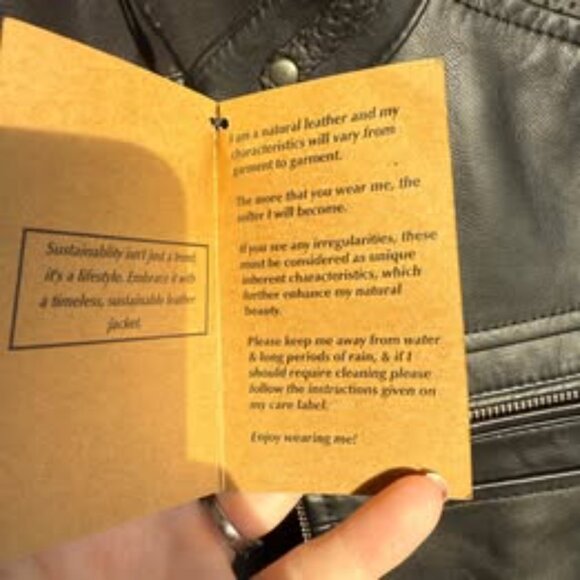 Sustainability isn't just a trend,
it's a lifestyle. Embrace it with
a timeless, sustainable leather
jacket.
I am a natural leather and my
characteristics will vary from
garment to garment.
The more that you wear me, the
softer I will become.
If you see any irregularities, these
must be considered as unique
inherent characteristics, which
further enhance my natural
beauty.
Please keep me away from water
& long periods of rain, & if I
should require cleaning please
follow the instructions given on
my care label.
Enjoy wearing me!